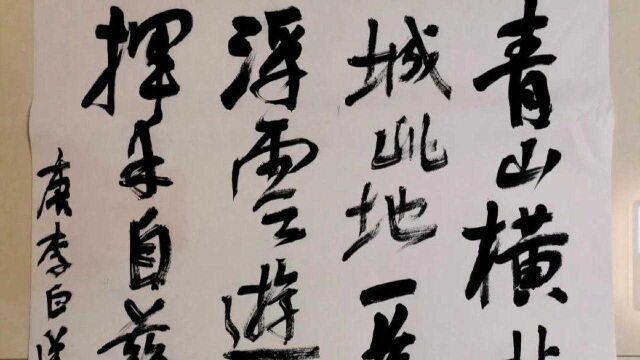 青山横北
城此地一為
浮雲遊
揮手自茲
唐李白送